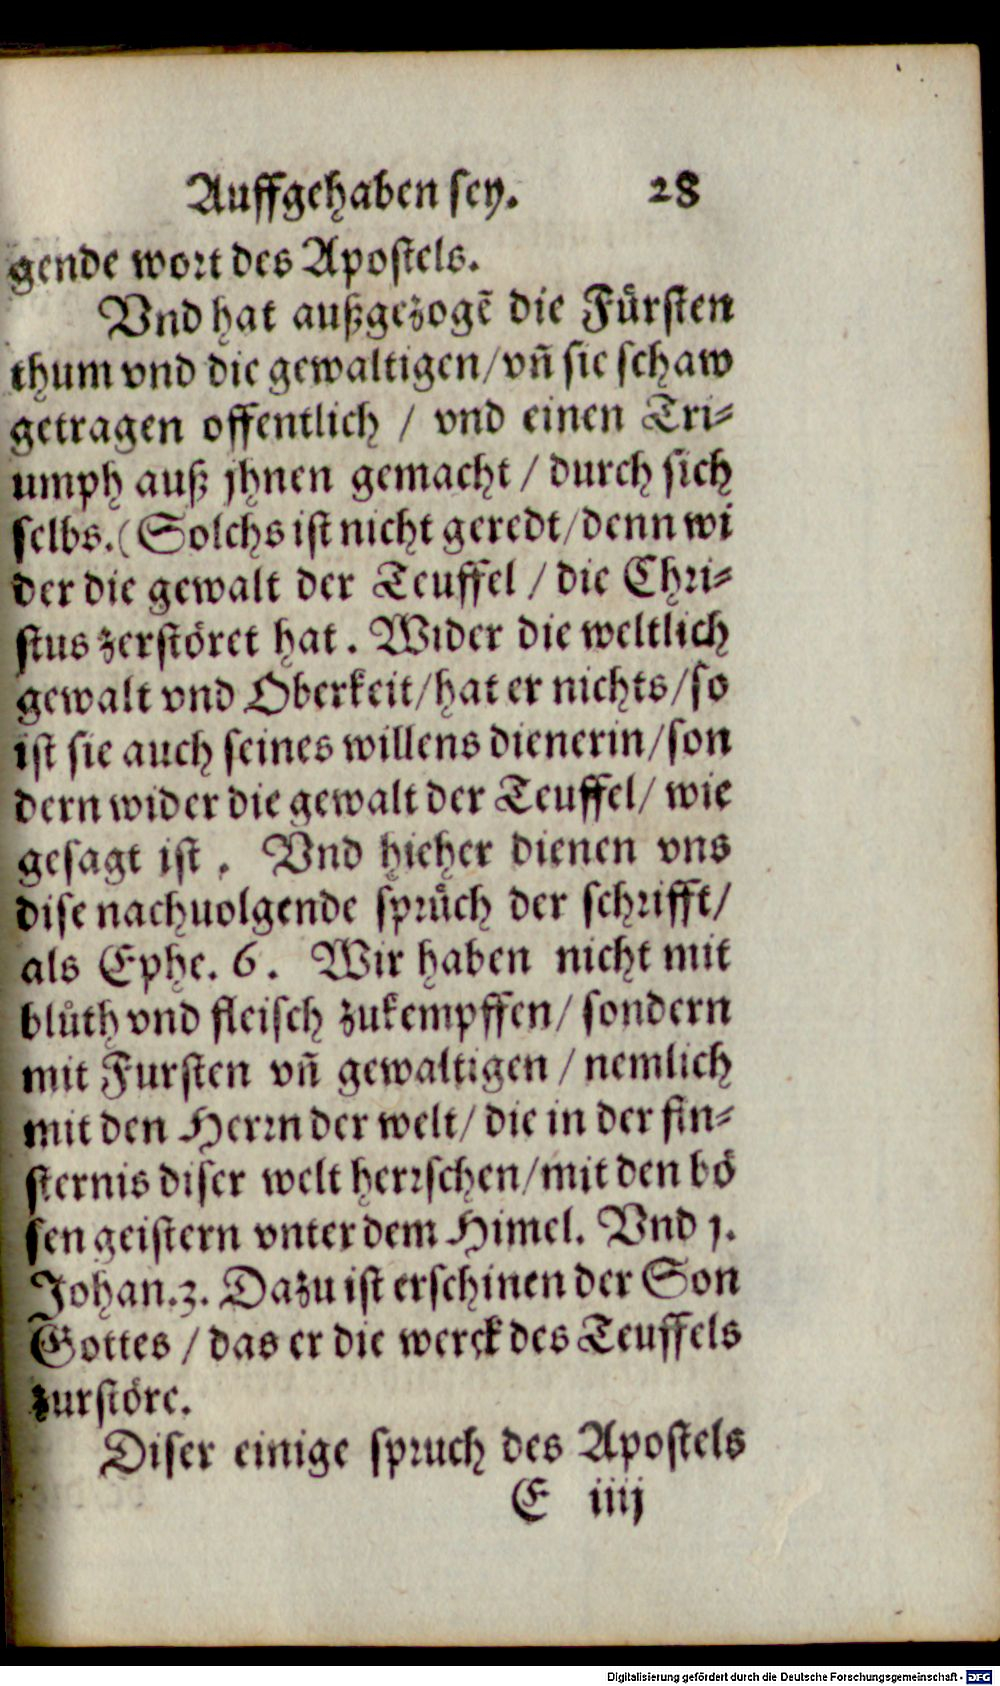 Auffgehaben sey. 28
gende wort des Apostels.
Vnd hat außgezogẽ die Fürsten
thum vnd die gewaltigen/vñ sie schaw
getragen offentlich / vnd einen Tri⸗
umph auß jhnen gemacht / durch sich
selbs. (Solchs ist nicht geredt/denn wi
der die gewalt der Teuffel / die Chri⸗
stus zerstöret hat. Wider die weltlich
gewalt vnd Oberkeit/hat er nichts/so
ist sie auch seines willens dienerin/son
dern wider die gewalt der Teuffel/ wie
gesagt ist. Vnd hieher dienen vns
dise nachuolgende sprüch der schrifft/
als Ephe. 6. Wir haben nicht mit
blůth vnd fleisch zukempffen/ sondern
mit Fursten vñ gewaltigen / nemlich
mit den Herrn der welt/ die in der fin⸗
sternis diser welt herrschen/mit den bö
sen geistern vnter dem Himel. Vnd 1.
Johan.3. Dazu ist erschinen der Son
Gottes / das er die werck des Teuffels
zurstöre.
Diser einige spruch des Apostels
E iiij
Digitalisierung gefördert durch die Deutsche Forschungsgemeinschaft - DFG